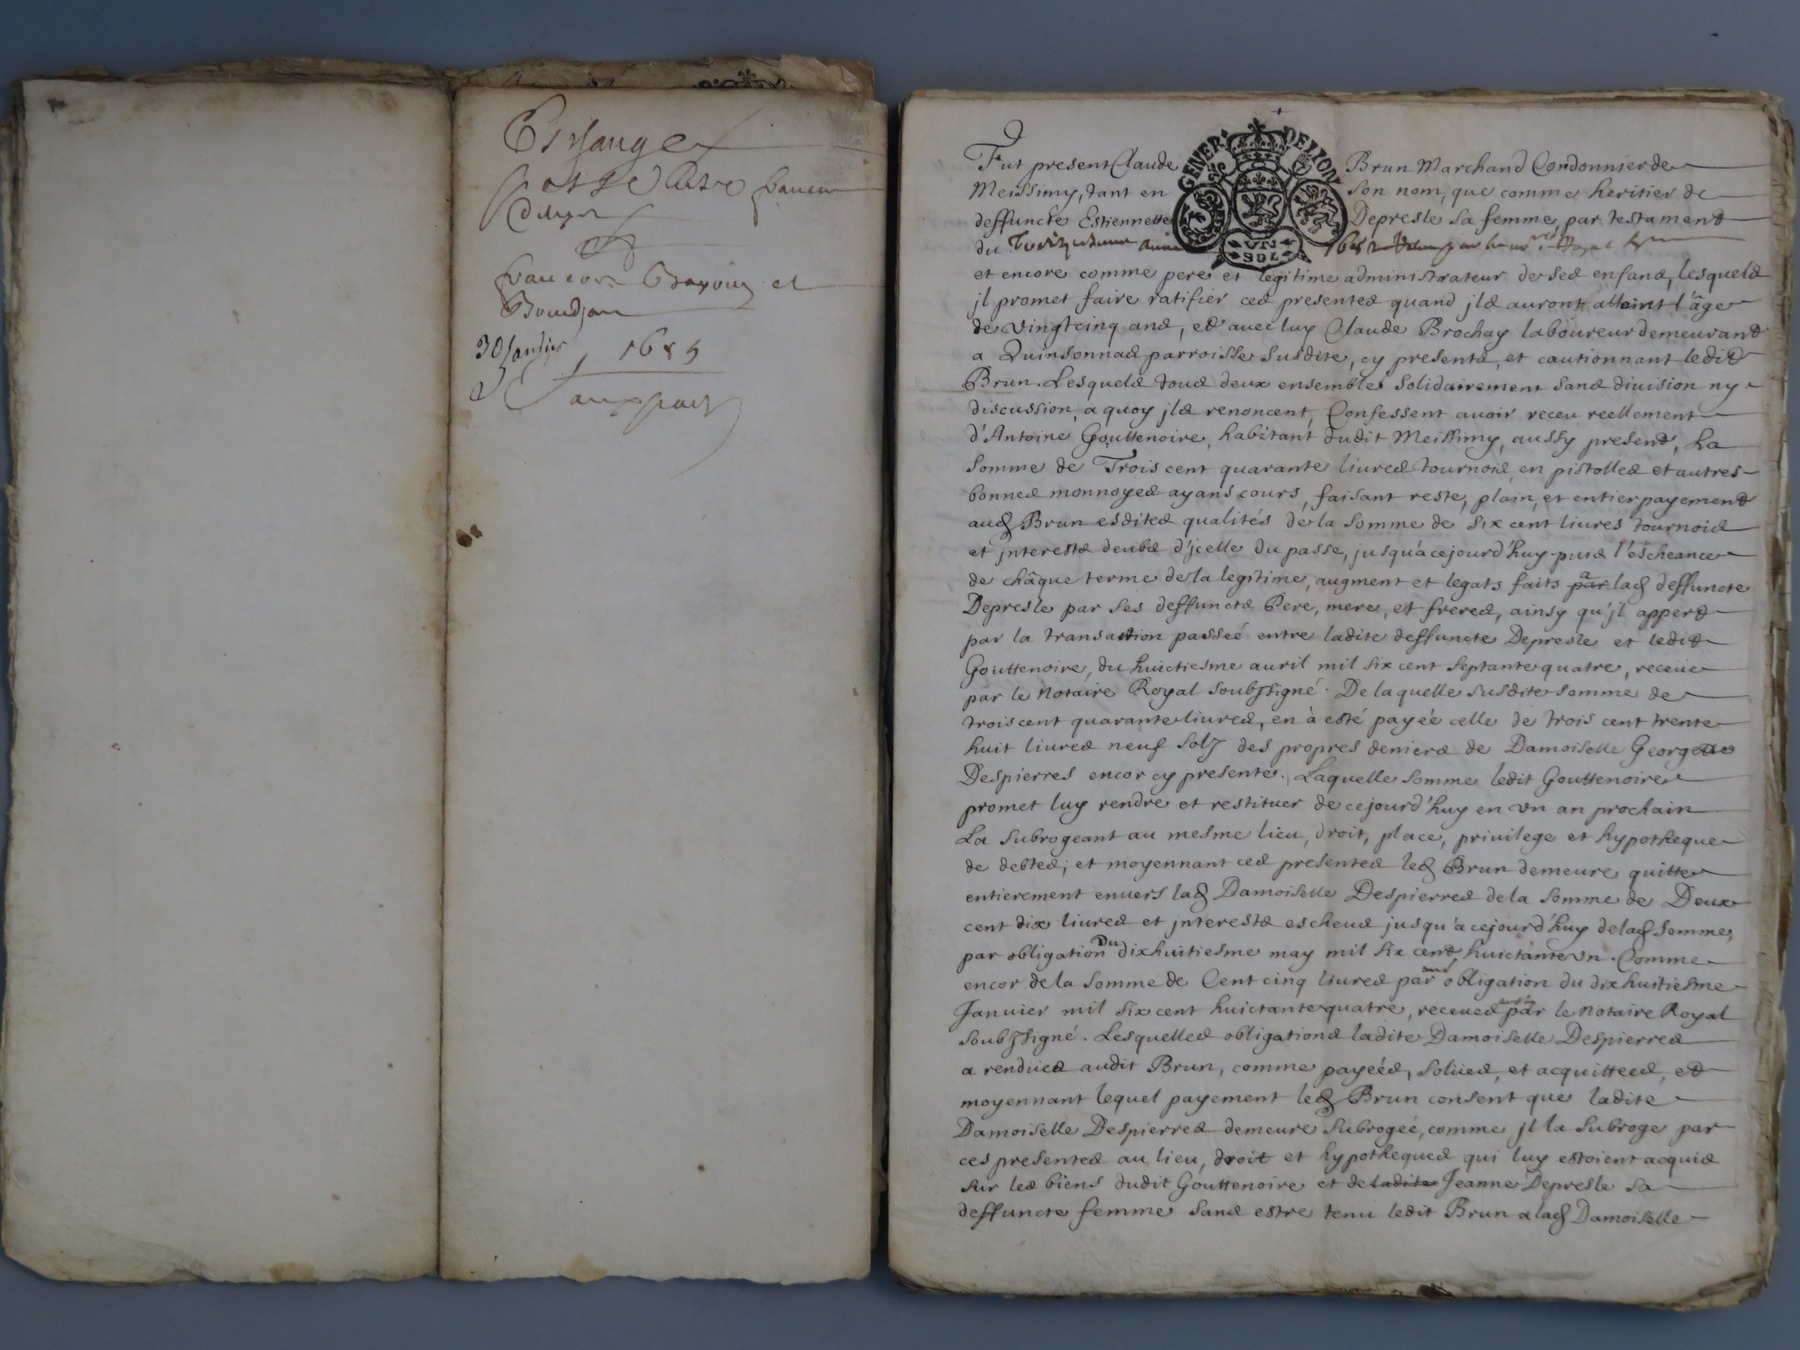 Eschange
francois et
30 Januier 1685
GENER. DE LION
VN SOL
Fut present Claude Brun Marchand Cordonnier de
Meissimy, tant en son nom, que comme heritier de
deffuncte Estiennette Depresle sa femme, par testament
du
et encore comme pere et legitime administrateur de ses enfans, lesquels
jl promet faire ratifier ces presentes quand jls auront attaint l'âge
de vingtcinq ans, et auec luy Claude Brochay laboureur demeurant
a Quinsonnas parroisse susdite, cy present, et cautionnant ledit
Brun. Lesquels tous deux ensemble solidairement sans diuision ny
discussion, a quoy jls renoncent, Confessent auoir receu reellement
d'Antoine Gouttenoire, habitant dudit Meissimy, aussy present, La
somme de Trois cent quarante liures tournois en pistolles et autres
bonnes monnoyes ayans cours, faisant reste, plain, et entier payement
aud Brun esdites qualités de la somme de six cent liures tournois
et jnterests deubs d'jcelle du passe, jusqu'a cejourd'huy puis l'escheance
de châque terme de la legitime, augment et legats faits par a lad deffuncte
Depresle par ses deffuncts Pere, mere, et freres, ainsy qu'jl appert
par la transaction passeé entre ladite deffuncte Depresle et ledit
Gouttenoire, du huictiesme auril mil six cent septante quatre, receue
par le Notaire Royal soubssigné. De laquelle susdite somme de
trois cent quarante liures, en à esté payée celle de trois cent trente
huit liures neuf sols des propres deniers de Damoiselle Georgette
Despierres encor cy presente. Laquelle somme ledit Gouttenoire
promet luy rendre et restituer de cejourd'huy en vn an prochain
La subrogeant au mesme lieu, droit, place, priuilege et hypotheque
de debtes; et moyennant ces presentes led Brun demeure quitte
entierement enuers lad Damoiselle Despierres de la somme de Deux
cent dix liures et jnterests escheus jusqu'a cejourd'huy de lad somme,
par obligation Du dixhuitiesme may mil six cent huictante vn. Comme
encor de la somme de Cent cinq liures par obligation du dixhuitiesme
Januier mil six cent huictante quatre, receues par le Notaire Royal
soubssigné. Lesquelles obligations ladite Damoiselle Despierres
a rendues audit Brun, comme payéés, soluës, et acquittees, et
moyennant lequel payement led Brun consent que ladite
Damoiselle Despierres demeure subrogeé, comme jl la subroge par
ces presentes au lieu, droit et hypotheques qui luy estoient acquis
sur les biens dudit Gouttenoire et de ladite Jeanne Depresle sa
deffuncte femme sans estre tenu ledit Brun a lad Damoiselle